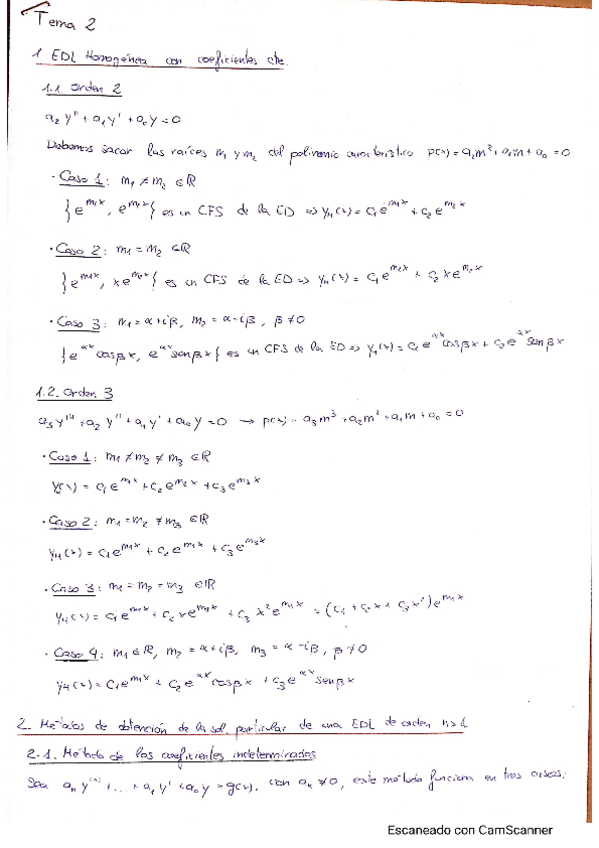 Tema 2
1 EDL Homogénea con coeficientes cte.
1.1 Orden 2
a₂y'' + a₁y' + a₀y = 0
Debemos sacar las raíces m₁ y m₂ del polinomio característico p(x) = a₂m² + a₁m + a₀ = 0
· Caso 1: m₁ ≠ m₂ ∈ ℝ
{e^{m₁x}, e^{m₂x}} es un CFS de la ED ⇒ y_H(x) = c₁e^{m₁x} + c₂e^{m₂x}
· Caso 2: m₁ = m₂ ∈ ℝ
{e^{m₁x}, xe^{m₂x}} es un CFS de la ED ⇒ y_H(x) = c₁e^{m₁x} + c₂xe^{m₂x}
· Caso 3: m₁ = α+iβ, m₂ = α-iβ, β ≠ 0
{e^{αx}cosβx, e^{αx}senβx} es un CFS de la ED ⇒ y_H(x) = c₁e^{αx}cosβx + c₂e^{αx}senβx
1.2. Orden 3
a₃y''' + a₂y'' + a₁y' + a₀y = 0 → p(x) = a₃m³ + a₂m² + a₁m + a₀ = 0
· Caso 1: m₁ ≠ m₂ ≠ m₃ ∈ ℝ
y(x) = c₁e^{m₁x} + c₂e^{m₂x} + c₃e^{m₃x}
· Caso 2: m₁ = m₂ ≠ m₃ ∈ ℝ
y_H(x) = c₁e^{m₁x} + c₂e^{m₁x} + c₃e^{m₃x}
· Caso 3: m₁ = m₂ = m₃ ∈ ℝ
y_H(x) = c₁e^{m₁x} + c₂xe^{m₁x} + c₃x²e^{m₁x} = (c₁ + c₂x + c₃x²)e^{m₁x}
· Caso 4: m₁ ∈ ℝ, m₂ = α+iβ, m₃ = α-iβ, β ≠ 0
y_H(x) = c₁e^{m₁x} + c₂e^{αx}cosβx + c₃e^{αx}senβx
2. Métodos de obtención de la sol. particular de una EDL de orden n>1
2.1. Método de los coeficientes indeterminados
Sea aₙy⁽ⁿ⁾ + ... + a₁y' + a₀y = g(x), con aₙ ≠ 0, este método funciona en tres casos:
Escaneado con CamScanner